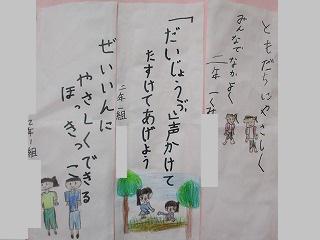 ともだちにやさしく
みんなでなかよく
二年一くみ
「だいじょうぶ」声かけて
たすけてあげよう
二年一組
ぜいいんに
やさしくできる
ほっきっこ
二年1組